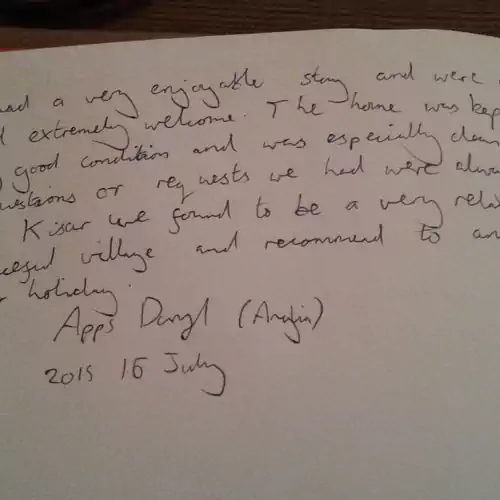 had a very enjoyable stay and were
extremely welcome. The home was kep
good condition and was especially clean
uestions or requests we had were alwa
Kisar we found to be a very rela
ceful village and recommend to an
holiday.
Apps Daryl (Anglia)
2015 16 July